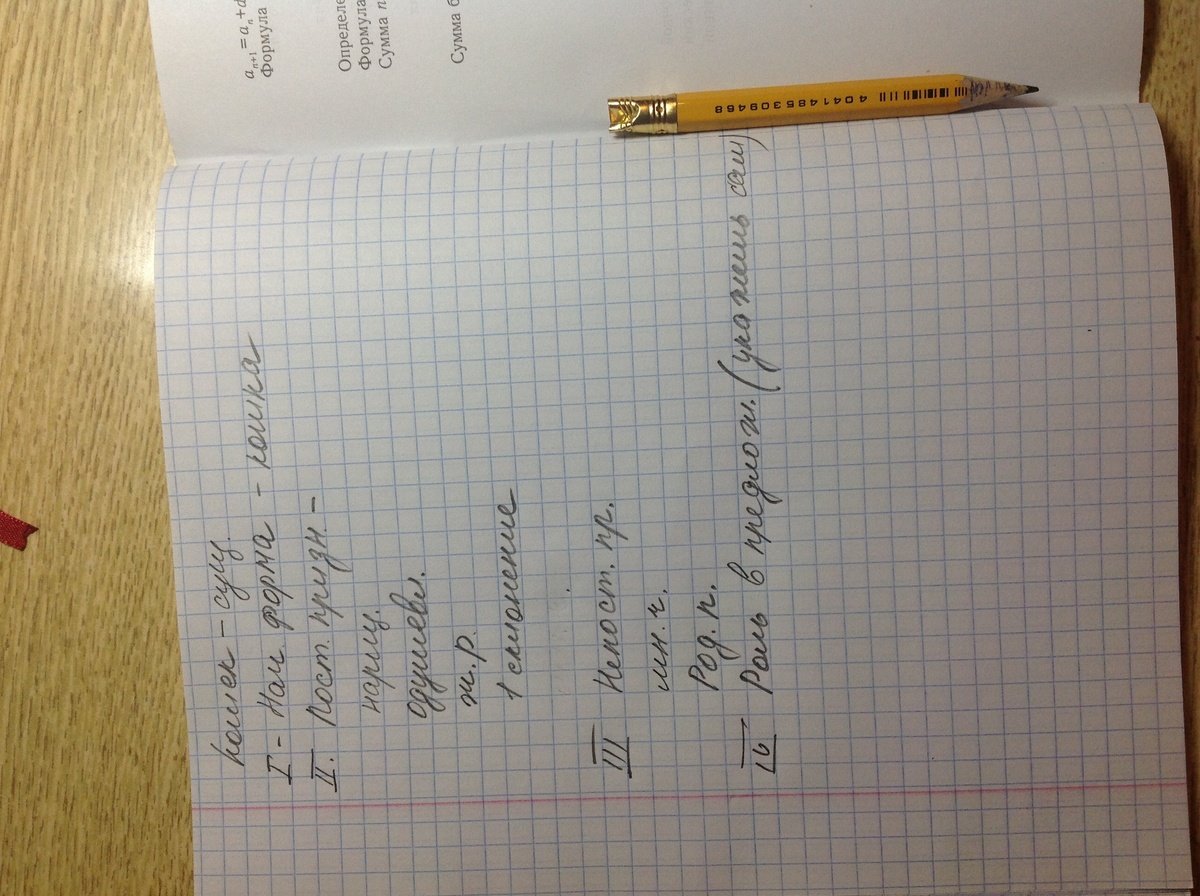 a_{n+1} = a_n + d
Формула
Определе
Формула
Сумма n
Сумма б
4041485309468
кошек – сущ.
I - Нач. форма – кошка
II. Пост. призн. –
нариц.
одушевл.
ж.р.
1 склонение
III Непост. пр.
мн. ч.
Род. п.
IV Роль в предлож. (укажешь сам)